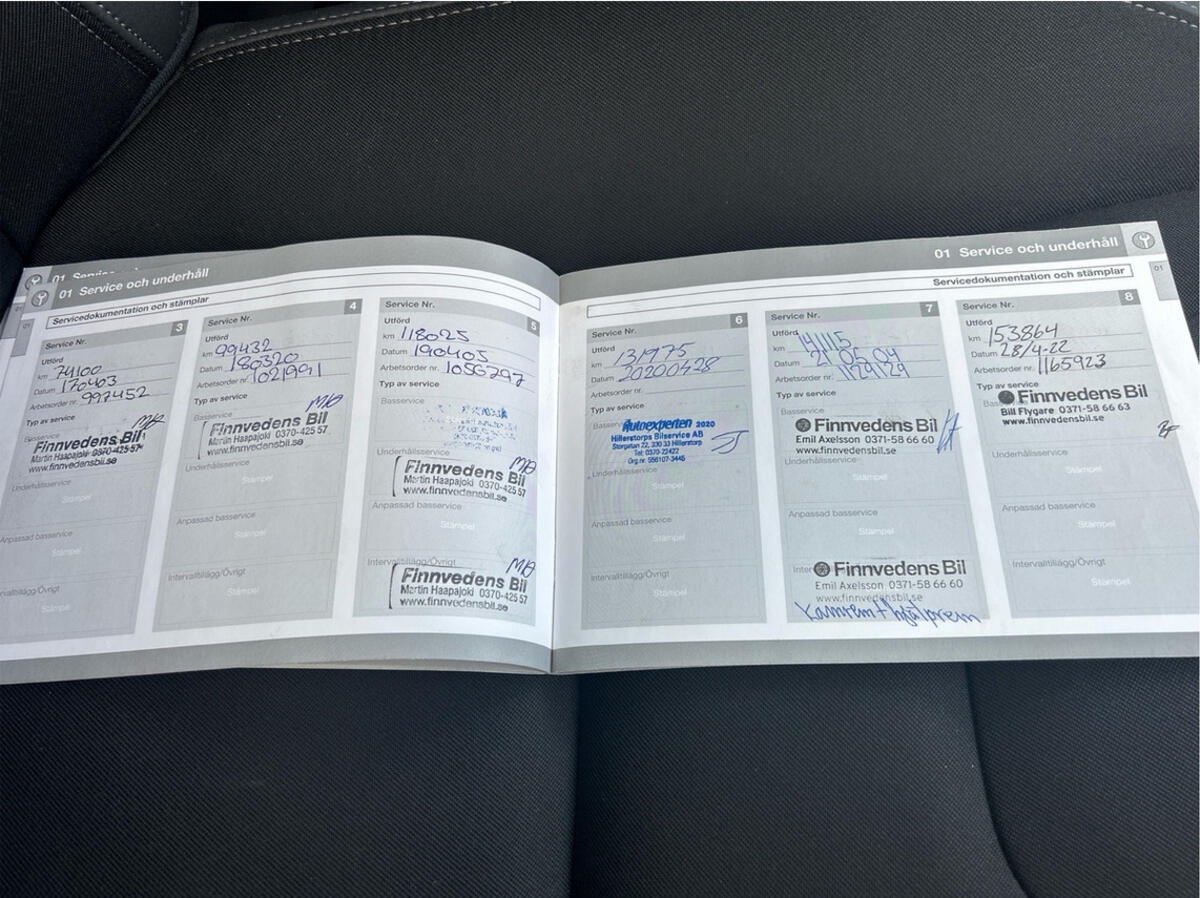 01 Service
01 Service och underhåll
Servicedokumentation och stämplar
Service Nr. 3
Utförd
km 74100
Datum 170403
Arbetsorder nr. 997452
Typ av service
MH
Basservice
Finnvedens Bil
Martin Haapajoki 0370-425 57
www.finnvedensbil.se
Underhållsservice
Stämpel
Anpassad basservice
Stämpel
Intervalltillägg/Övrigt
Stämpel
Service Nr. 4
Utförd
km 99432
Datum 180320
Arbetsorder nr. 1021991
Typ av service
MH
Basservice
Finnvedens Bil
Martin Haapajoki 0370-425 57
www.finnvedensbil.se
Underhållsservice
Stämpel
Anpassad basservice
Stämpel
Intervalltillägg/Övrigt
Stämpel
Service Nr. 5
Utförd
km 118025
Datum 190405
Arbetsorder nr. 1056797
Typ av service
Basservice
MH
Finnvedens Bil
Martin Haapajoki 0370-425 57
www.finnvedensbil.se
Anpassad basservice
Stämpel
Intervalltillägg/Övrigt
MH
Finnvedens Bil
Martin Haapajoki 0370-425 57
www.finnvedensbil.se
01 Service och underhåll
Servicedokumentation och stämplar
01
Service Nr. 6
Utförd
km 131975
Datum 20200428
Arbetsorder nr.
Typ av service
Autoexperten 2020
Hillerstorps Bilservice AB
Storgatan 22, 330 33 Hillerstorp
Tel: 0370-22422
Org.nr. 556107-3445
Underhållsservice
Stämpel
Anpassad basservice
Stämpel
Intervalltillägg/Övrigt
Stämpel
Service Nr. 7
Utförd
km 141115
Datum 21 05 04
Arbetsorder nr. 1129129
Typ av service
Basservice
Finnvedens Bil
Emil Axelsson 0371-58 66 60
www.finnvedensbil.se
Underhållsservice
Stämpel
Anpassad basservice
Stämpel
Finnvedens Bil
Emil Axelsson 0371-58 66 60
www.finnvedensbil.se
Kamrem + hjälprem
Service Nr. 8
Utförd
km 153864
Datum 28/4-22
Arbetsorder nr. 1165923
Typ av service
Finnvedens Bil
Bill Flygare 0371-58 66 63
www.finnvedensbil.se
BF
Underhållsservice
Stämpel
Anpassad basservice
Stämpel
Intervalltillägg/Övrigt
Stämpel